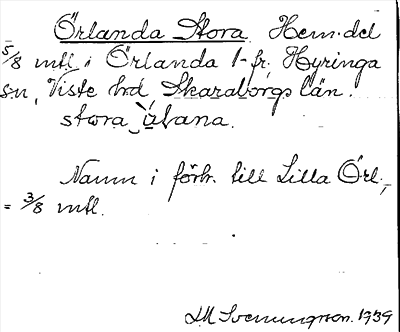 Örlanda Stora. Hem.del
5/8 mtl. i Örlanda 1-fr. Hyringa
sn, Viste hrd Skaraborgs län.
stora ́ålana.
Namn i förh. till Lilla Örl.,
= 3/8 mtl.
JM Svenungson. 1939